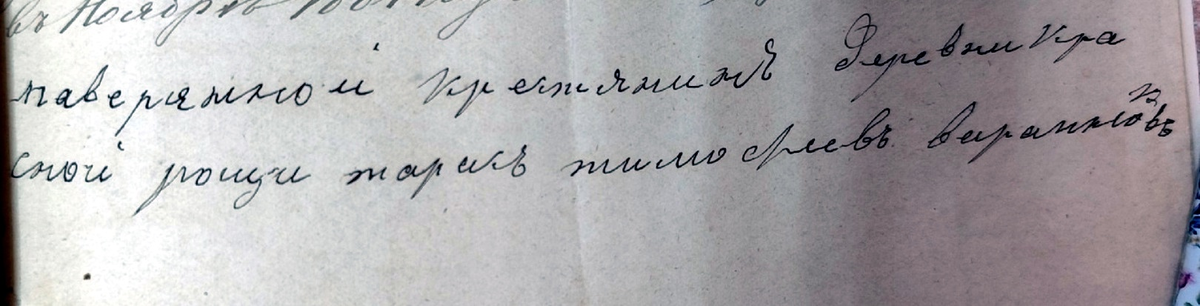 въ Ноябрѣ
паверянной крестянинъ Деревни Кра
сной рощи тарасъ тимофеевъ варанковъ